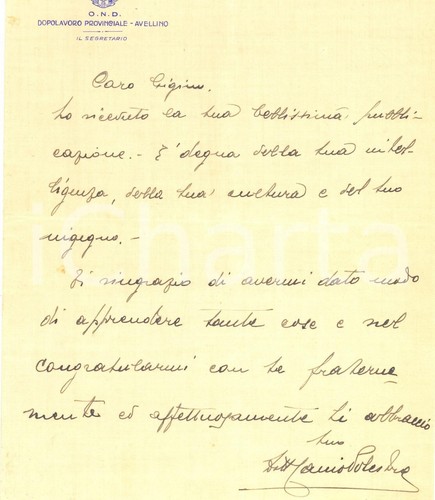 O.N.D.
DOPOLAVORO PROVINCIALE - AVELLINO
IL SEGRETARIO
Caro Gigino.
ho ricevuto la tua bellissima pubbli-
cazione. - E' degna della tua intel-
ligenza, della tua cultura e del tuo
ingegno. -
Ti ringrazio di avermi dato modo
di apprendere tante cose e nel
congratularmi con te fraterna
mente ed affettuosamente ti abbraccio
tuo